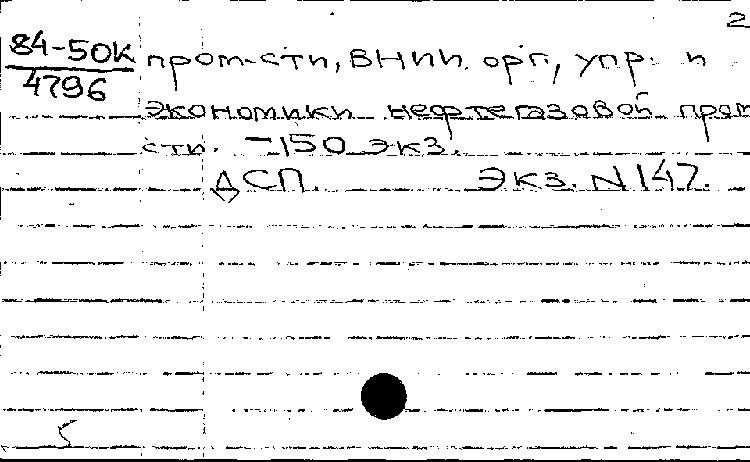 2
84-50К пром-сти, ВНИИ орг, упр. и
4796
экономики нефтегазовой пром
сти. -150 экз.
ДСП. Экз. N 147.
5